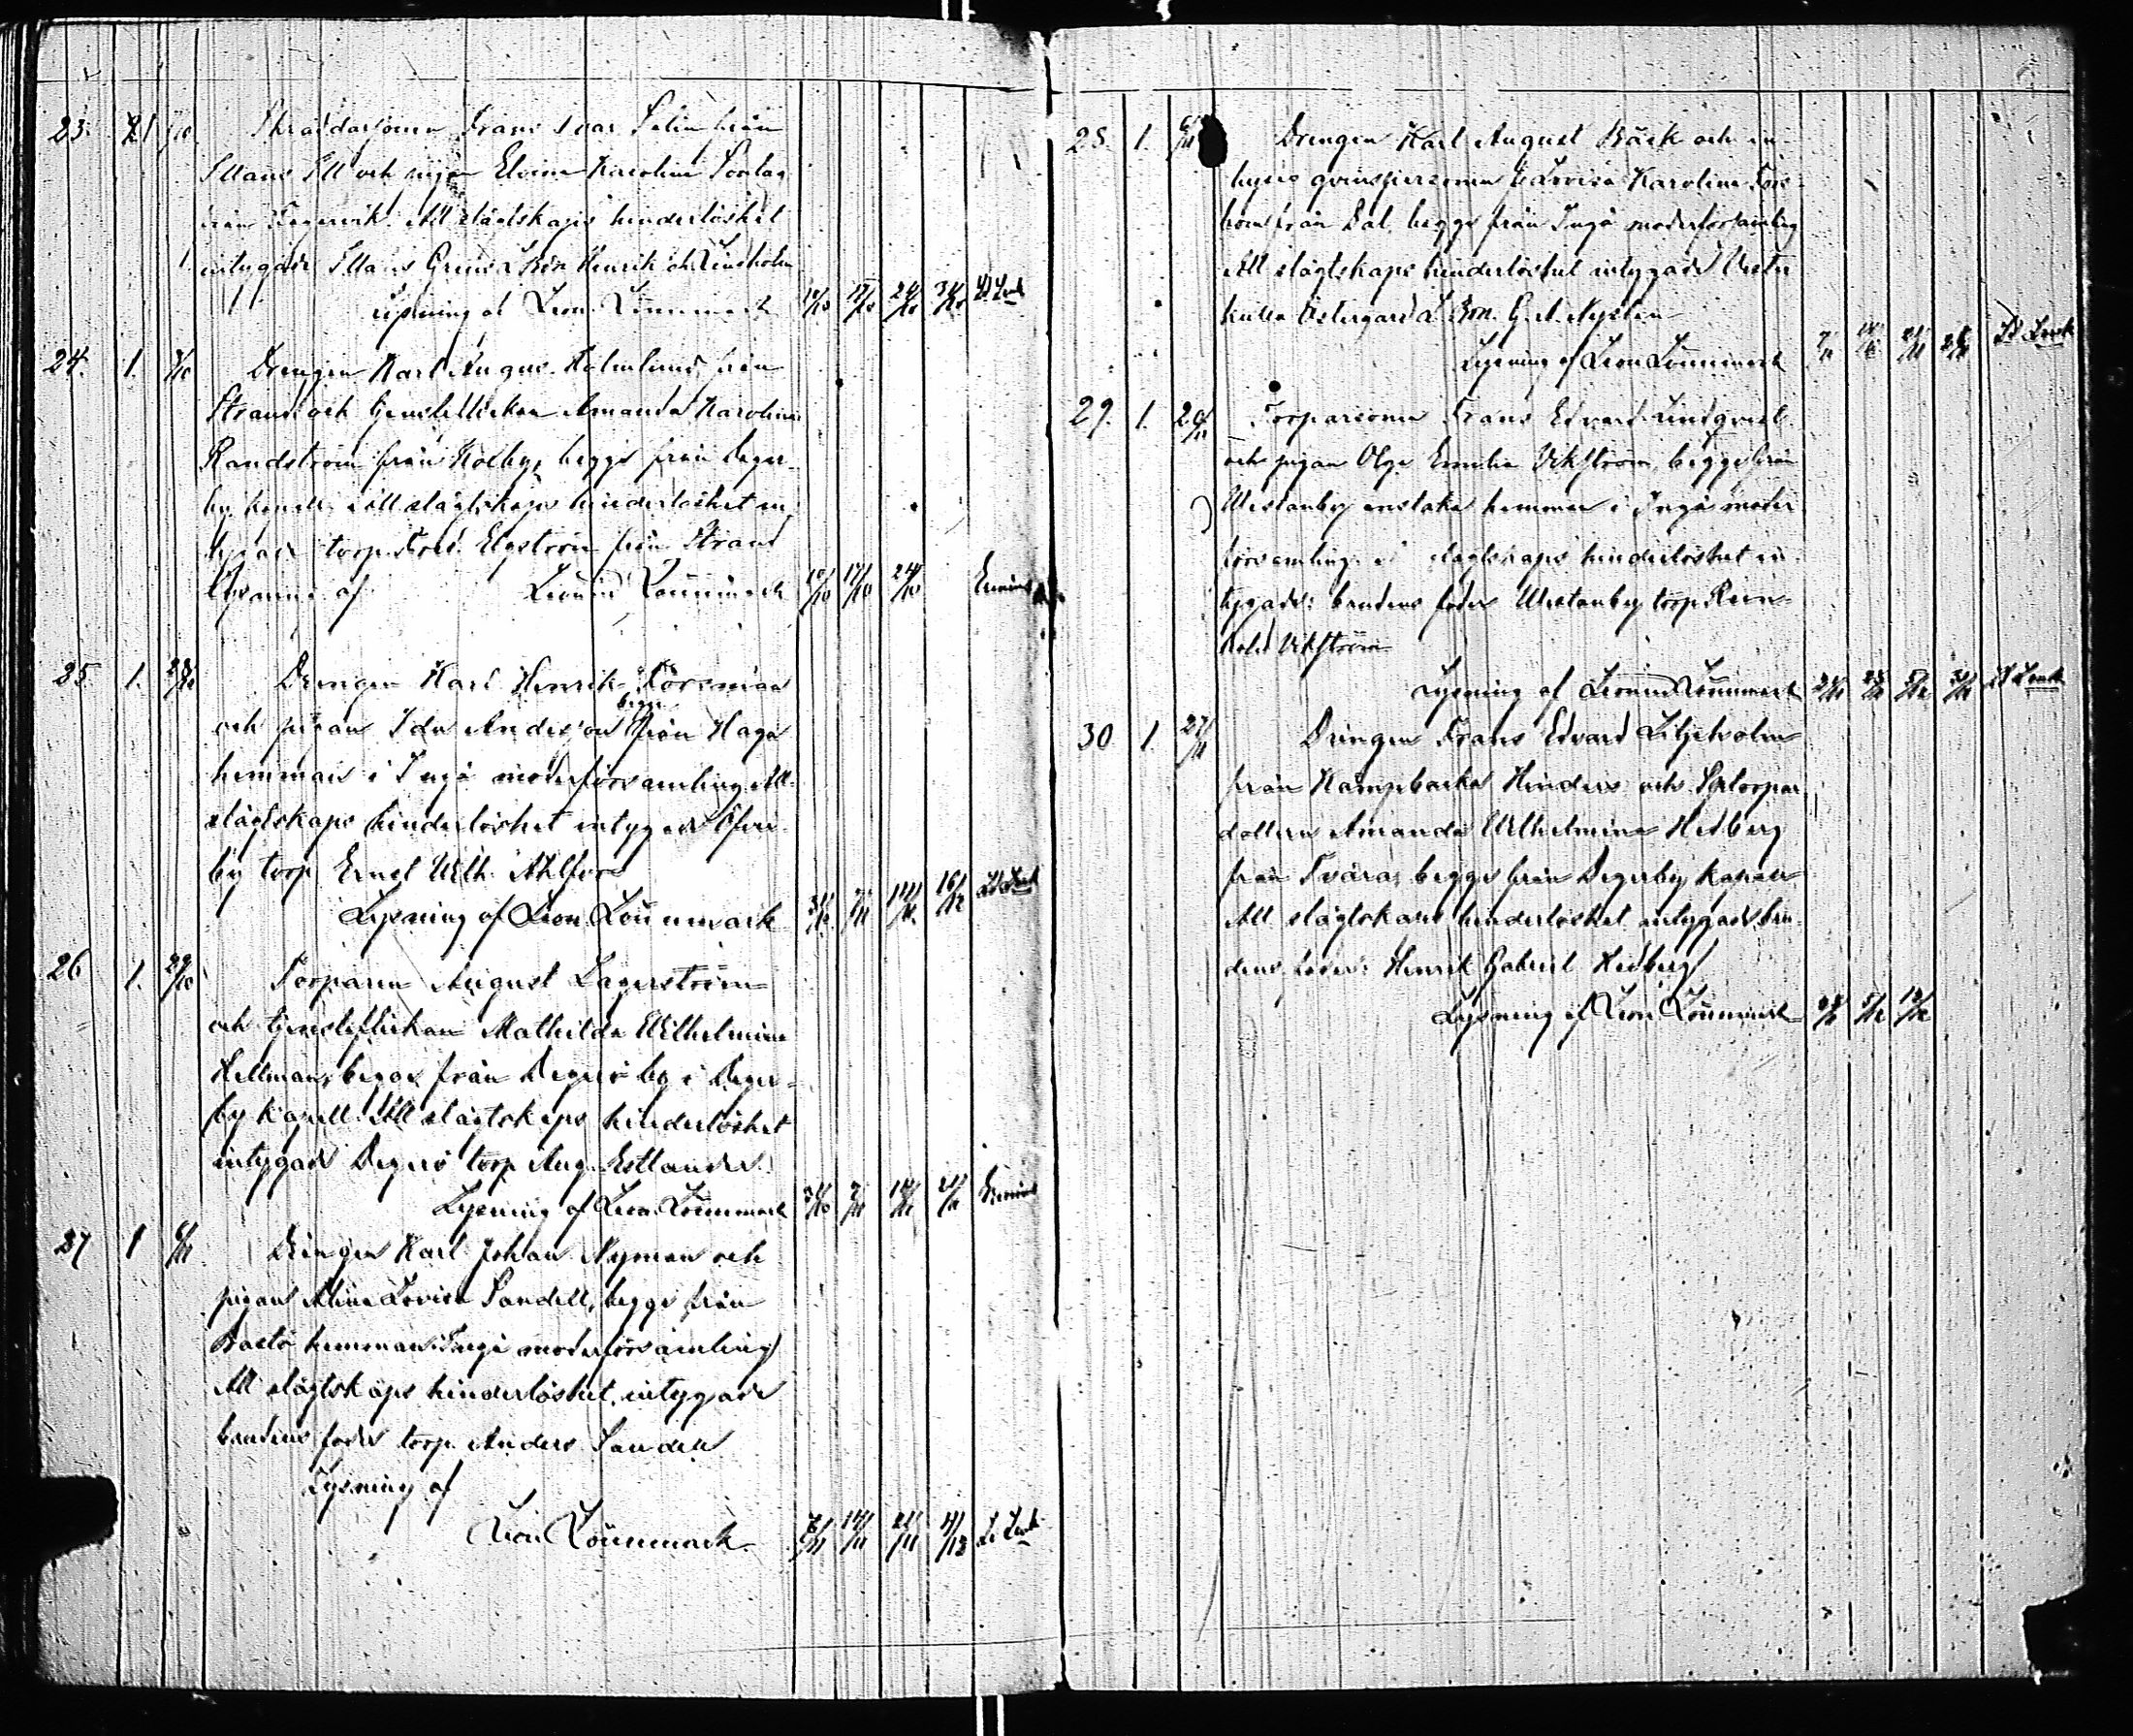 23. 21 /10 Skräddarsonen Frans Ivar Selin från
och pigan Elvina Karolina
från Fagervik. All slägtskaps hinderlöshet
intygade Henrik Lindholm
Lysning af Leon. Lönnmark 10/10 17/10 24/10 31/10
24. 1. /10 Drengen Karl August Holmlund från
Strand och tjensteflickan Amanda Karolina
Randström från Kolby, begge från Deger-
by kapell. All slägtskaps hinderlöshet in-
tygade torp. Fred. Elgström från Strand
Lysning af Leonard Lönnmark 10/10 17/10 24/10
25. 1. 23/10 Drengen Karl Henrik Forsman
begge
och pigan Ida Andersson från Haga
hemman i Ingå moderförsamling. All
slägtskaps hinderlöshet intygade Öfver-
by torp Ernst Wilh. Ahlfors
Lysning af Leon. Lönnmark 31/10 7/11 14/11
26 1. 29/10 Torparen August Lagerström
och tjensteflickan Mathilda Wilhelmina
Hellman, begge från Degerö by i Deger-
by kapell. All slägtskaps hinderlöshet
intygade Degerö torp Aug. Estlander.
Lysning af Leon. Lönnmark 31/10 7/11 14/11
27 1 6/11 Drengen Karl Johan Nyman och
pigan Alina Lovisa Sandell, begge från
hemman i Ingå moderförsamling
All slägtskaps hinderlöshet intygade
brudens fader torp. Anders Sandell
Lysning af
Leon Lönnmark 7/11 14/11 21/11
28. 1. 6/11 Drengen Karl August Bäck och in-
hyses qvinspersonen Lovisa Karolina Fors-
bom från Dal, begge från Ingå moderförsamling
All slägtskaps hinderlöshet intygade Vester
kulla Östergård
Lysning af Leon Lönnmark 7/11 14/11 21/11
29. 1. 20/11 Torparsonen Frans Edvard Lindqvist
och pigan Olga Emilia Vikström, begge från
Westanby enstaka hemman i Ingå moder
församling. slägtskaps hinderlöshet in-
tygade: brudens fader Westanby torp. Rein-
hold Vikström
Lysning af Leonard Lönnmark 21/11 28/11 5/12
30 1. 27/11 Drengen Frans Edvard Liljeholm
från Kämpbacka Hinders och
dottern Amanda Wilhelmina Hedberg
från Tvära, begge från Degerby kapell
All slägtskaps hinderlöshet intygade bru-
dens fader: Henrik Gabriel Hedberg
Lysning af Leon Lönnmark 28/11 5/12 12/12